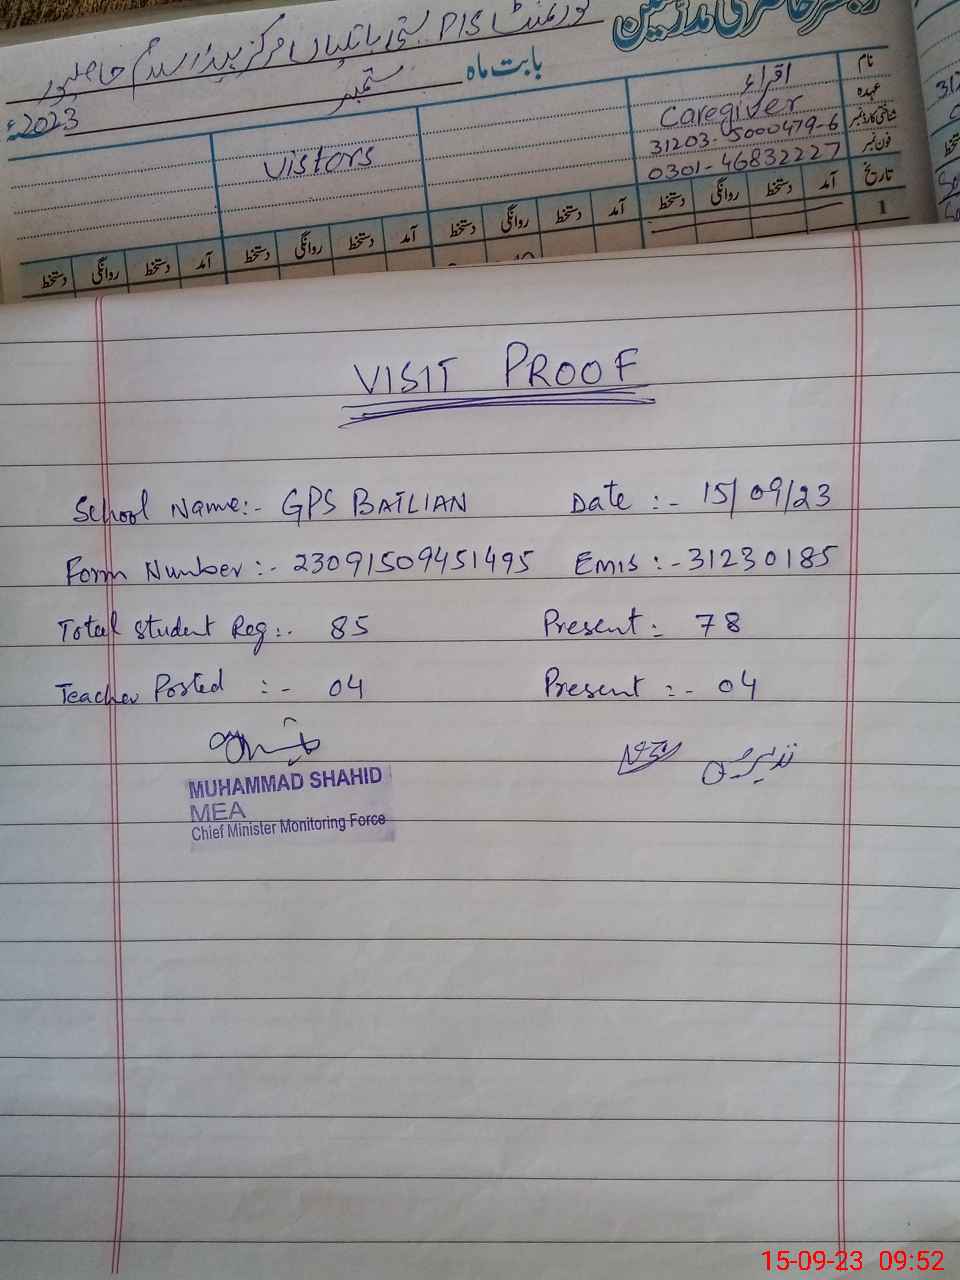 رجسٹر حاضری مدرسین
گورنمنٹ P/S بستی باٹلیاں مرکز
بابت ماہ ستمبر 2023ء
نام اقراء
عہدہ Caregiver
شناختی کارڈ نمبر 31203-5000479-6
فون نمبر 0301-46832227
Vistors
تاریخ آمد دستخط روانگی دستخط آمد دستخط روانگی دستخط آمد دستخط روانگی دستخط
1
VISIT PROOF
School Name:- GPS BATLIAN Date :- 15/09/23
Form Number :- 23091509451495 Emis :- 31230185
Total Student Reg:- 85 Present:- 78
Teacher Posted :- 04 Present :- 04
MUHAMMAD SHAHID
MEA
Chief Minister Monitoring Force
15-09-23 09:52